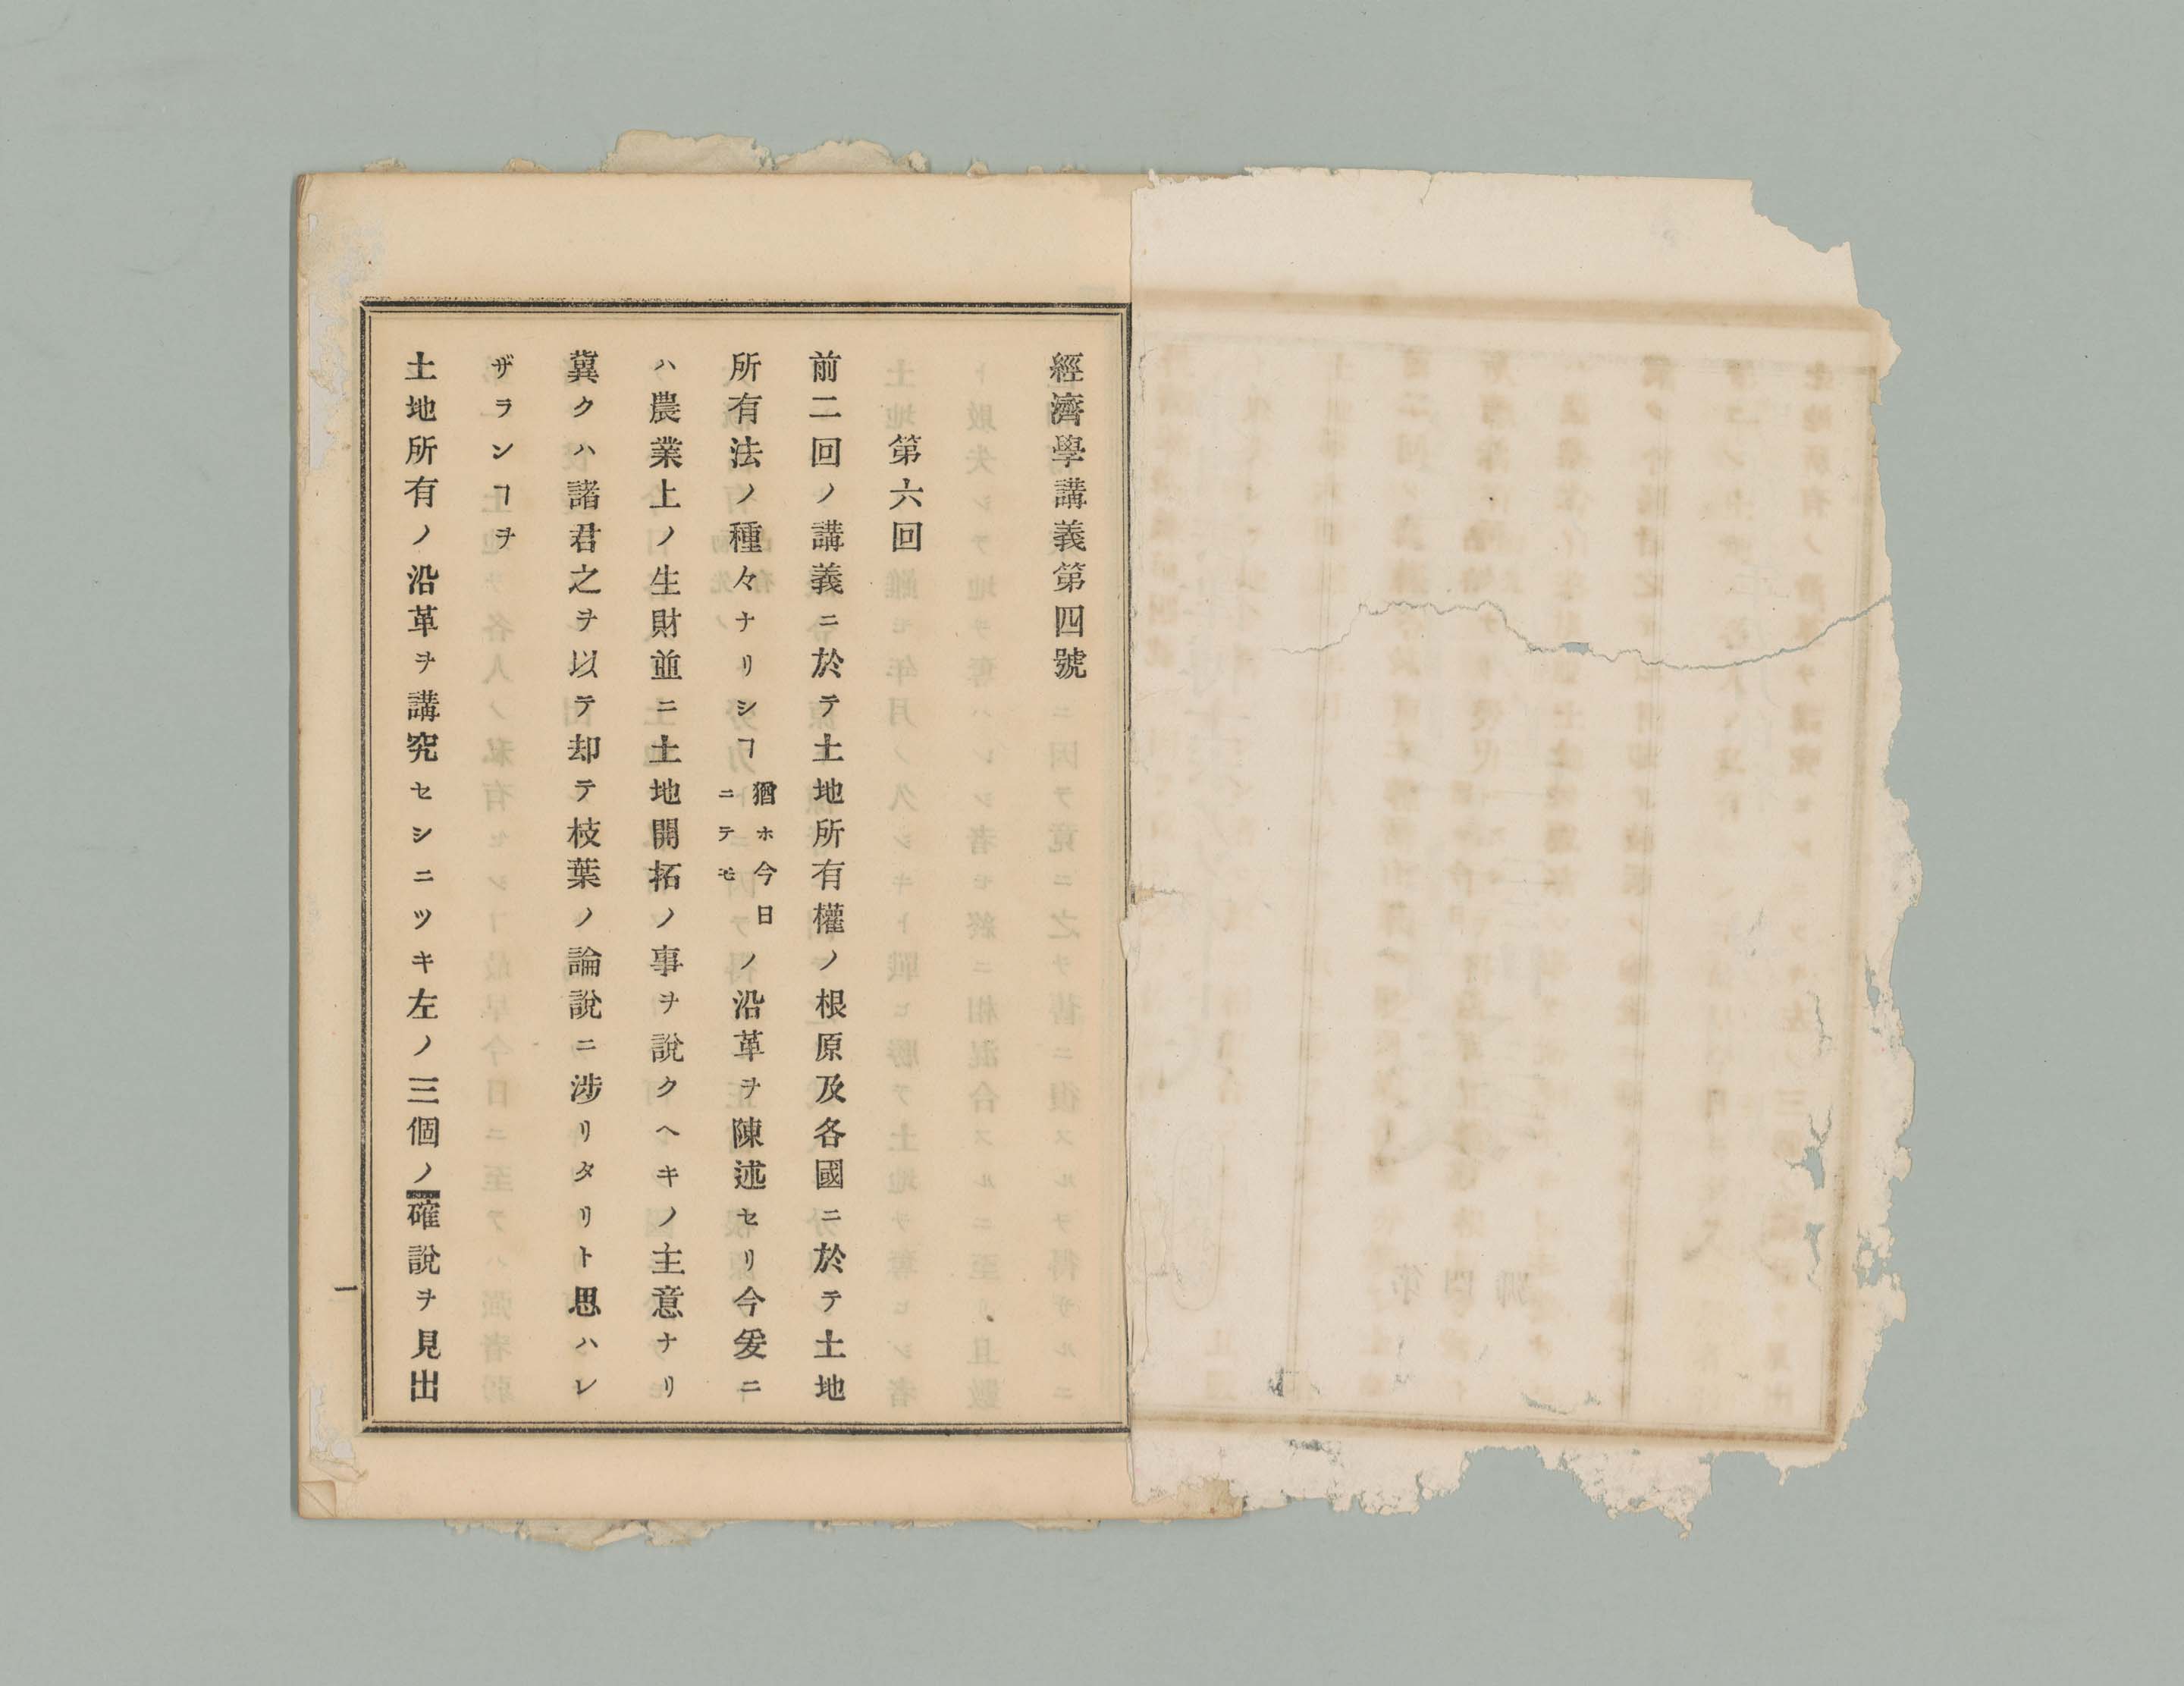 經濟學講義第四號
第六回
前二回ノ講義ニ於テ土地所有權ノ根原及各國ニ於テ土地
所有法ノ種々ナリシヿ猶ホ今日ニテモノ沿革ヲ陳述セリ今爰ニ
ハ農業上ノ生財並ニ土地開拓ノ事ヲ說クヘキノ主意ナリ
冀クハ諸君之ヲ以テ却テ枝葉ノ論說ニ涉リタリト思ハレ
ザランヿヲ
土地所有ノ沿革ヲ講究セシニツキ左ノ三個ノ確說ヲ見出
一